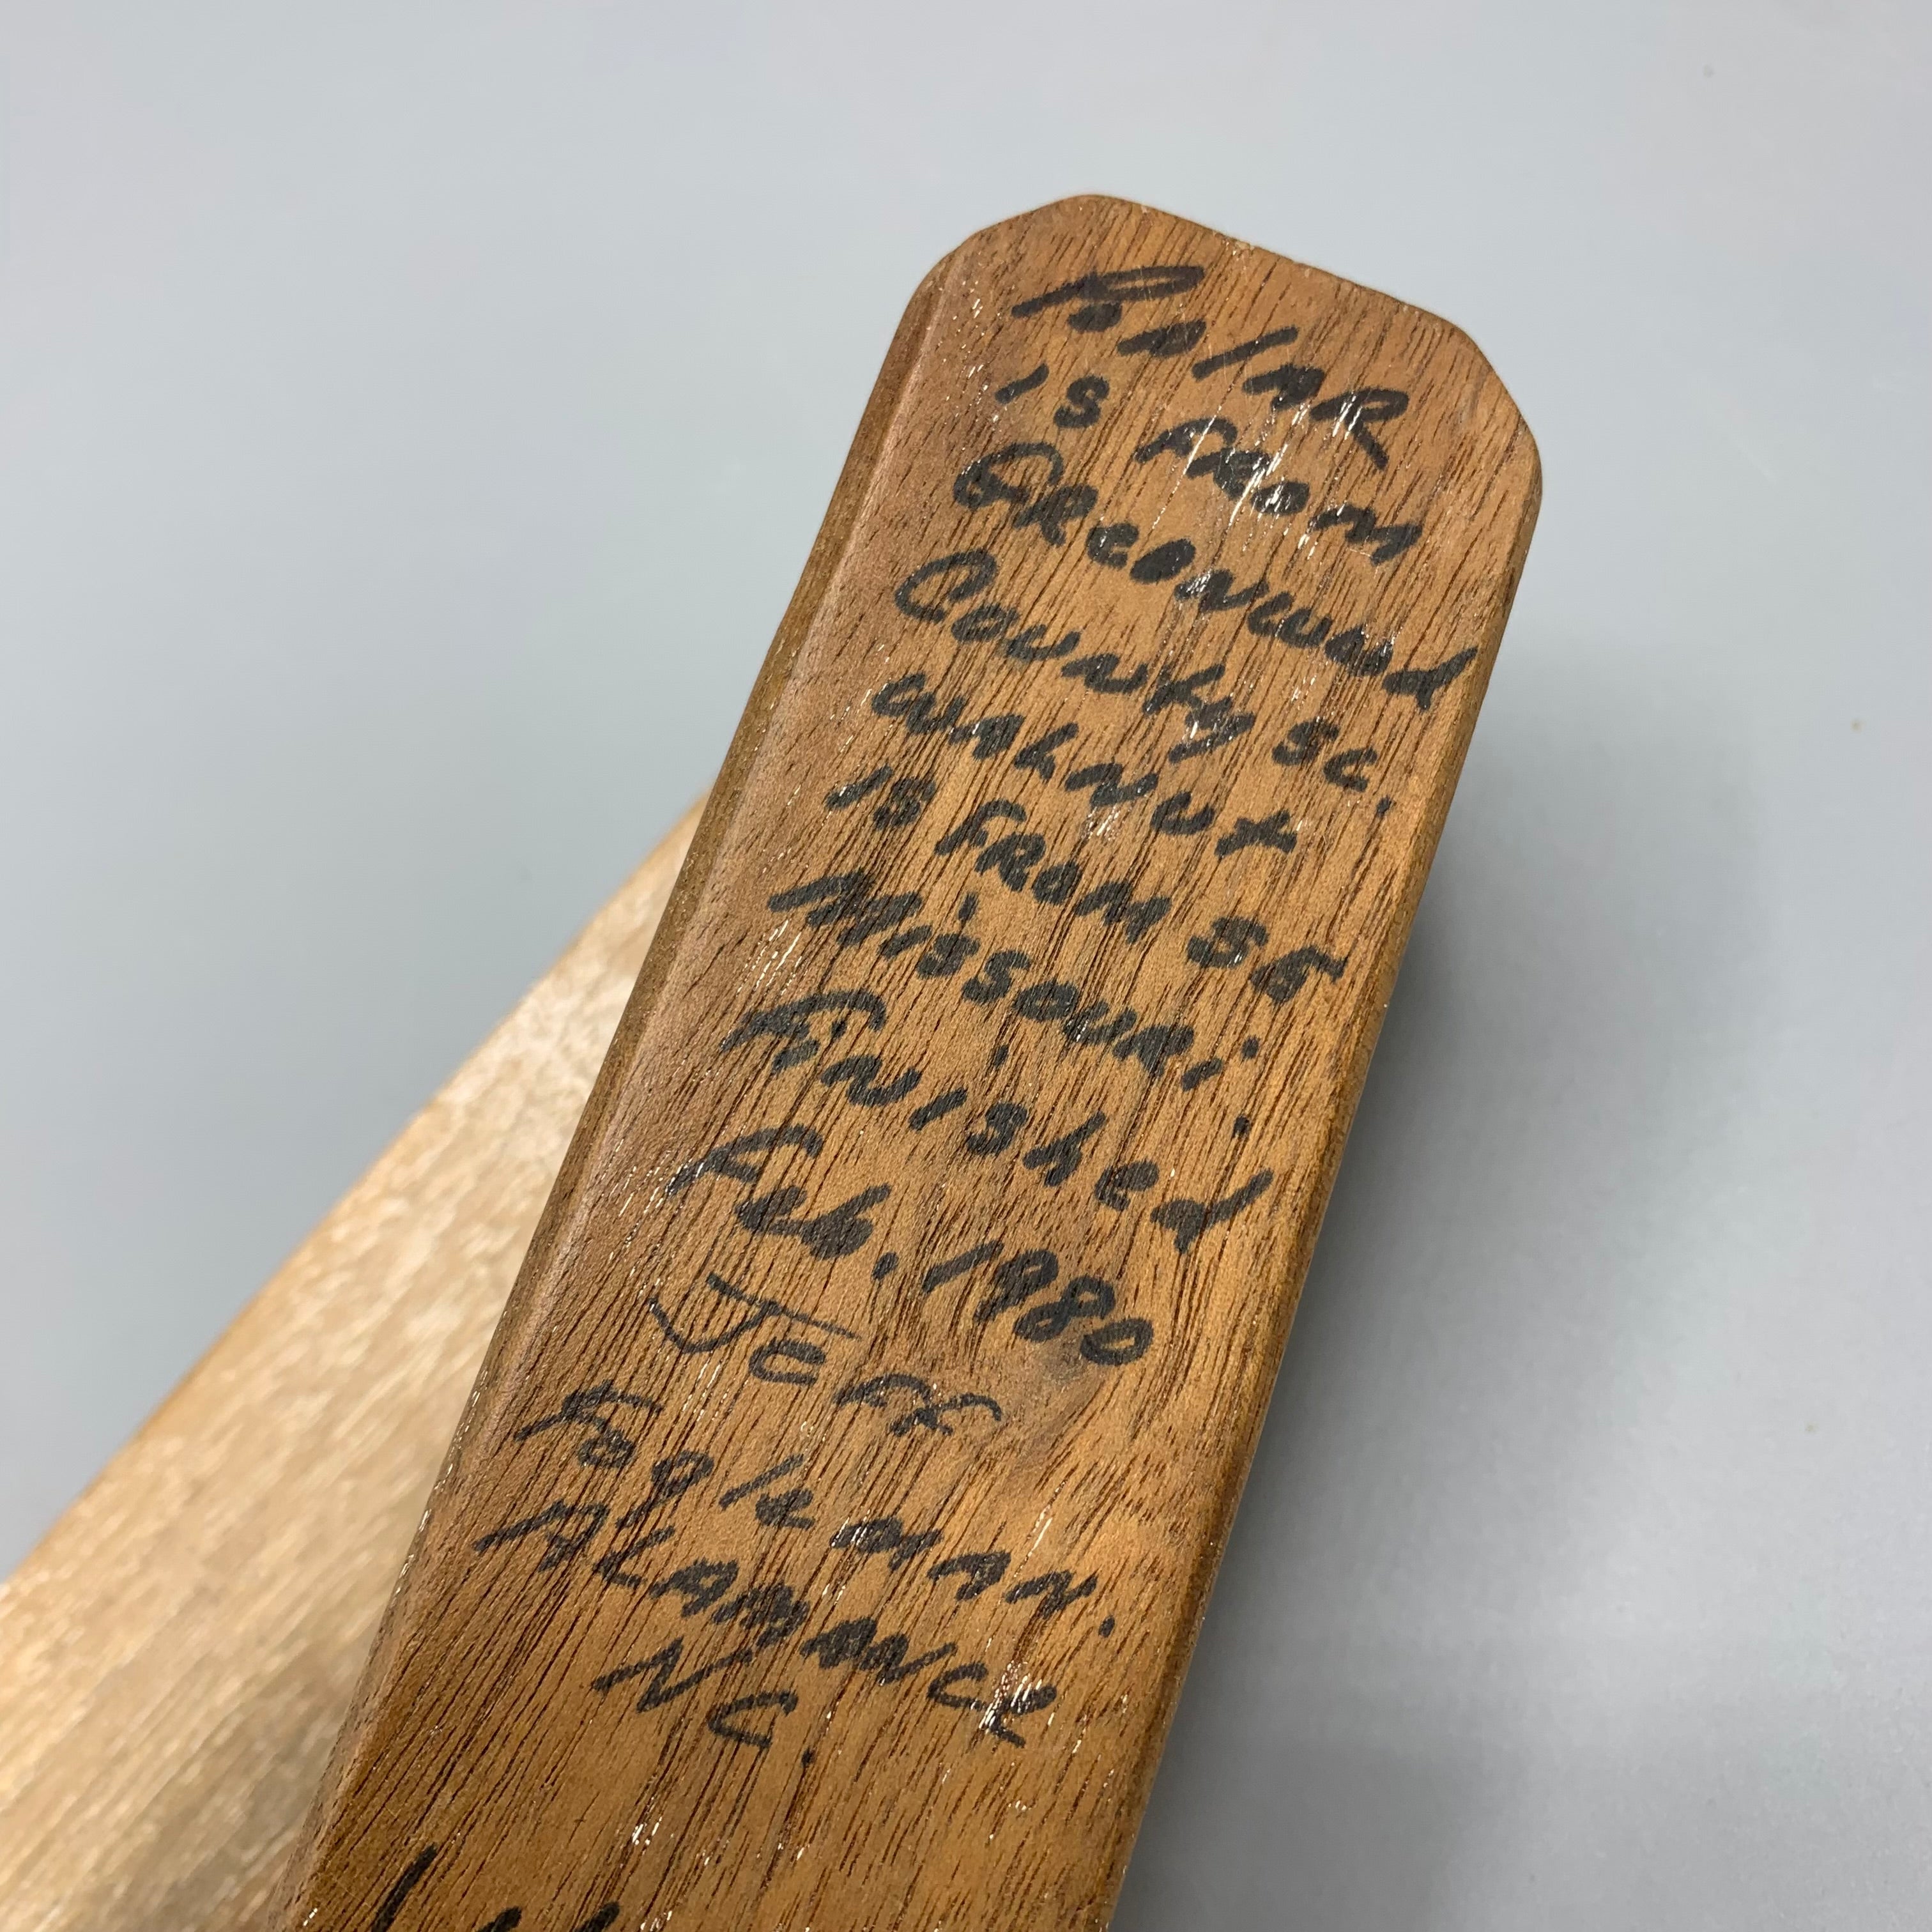 Poplar
is from
Greenwood
County SC.
Walnut
is from SE
Missouri.
Finished
Feb, 1980
Jeff
Fogleman.
ALAMANCE
NC.